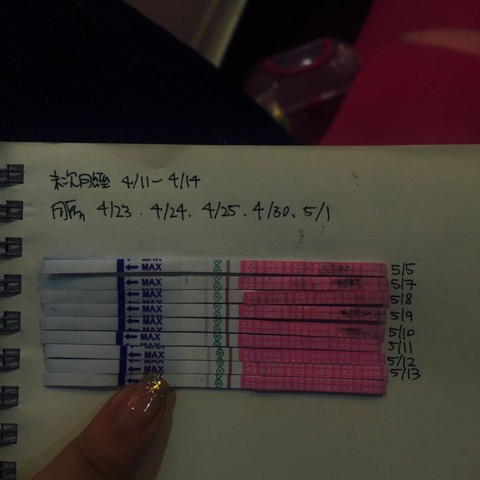 末次月經 4/11－4/14
同房 4/23．4/24．4/25．4/30、5/1
MAX 5/5
MAX 5/7
MAX 5/8
MAX 5/9
MAX 5/10
MAX 5/11
MAX 5/12
MAX 5/13